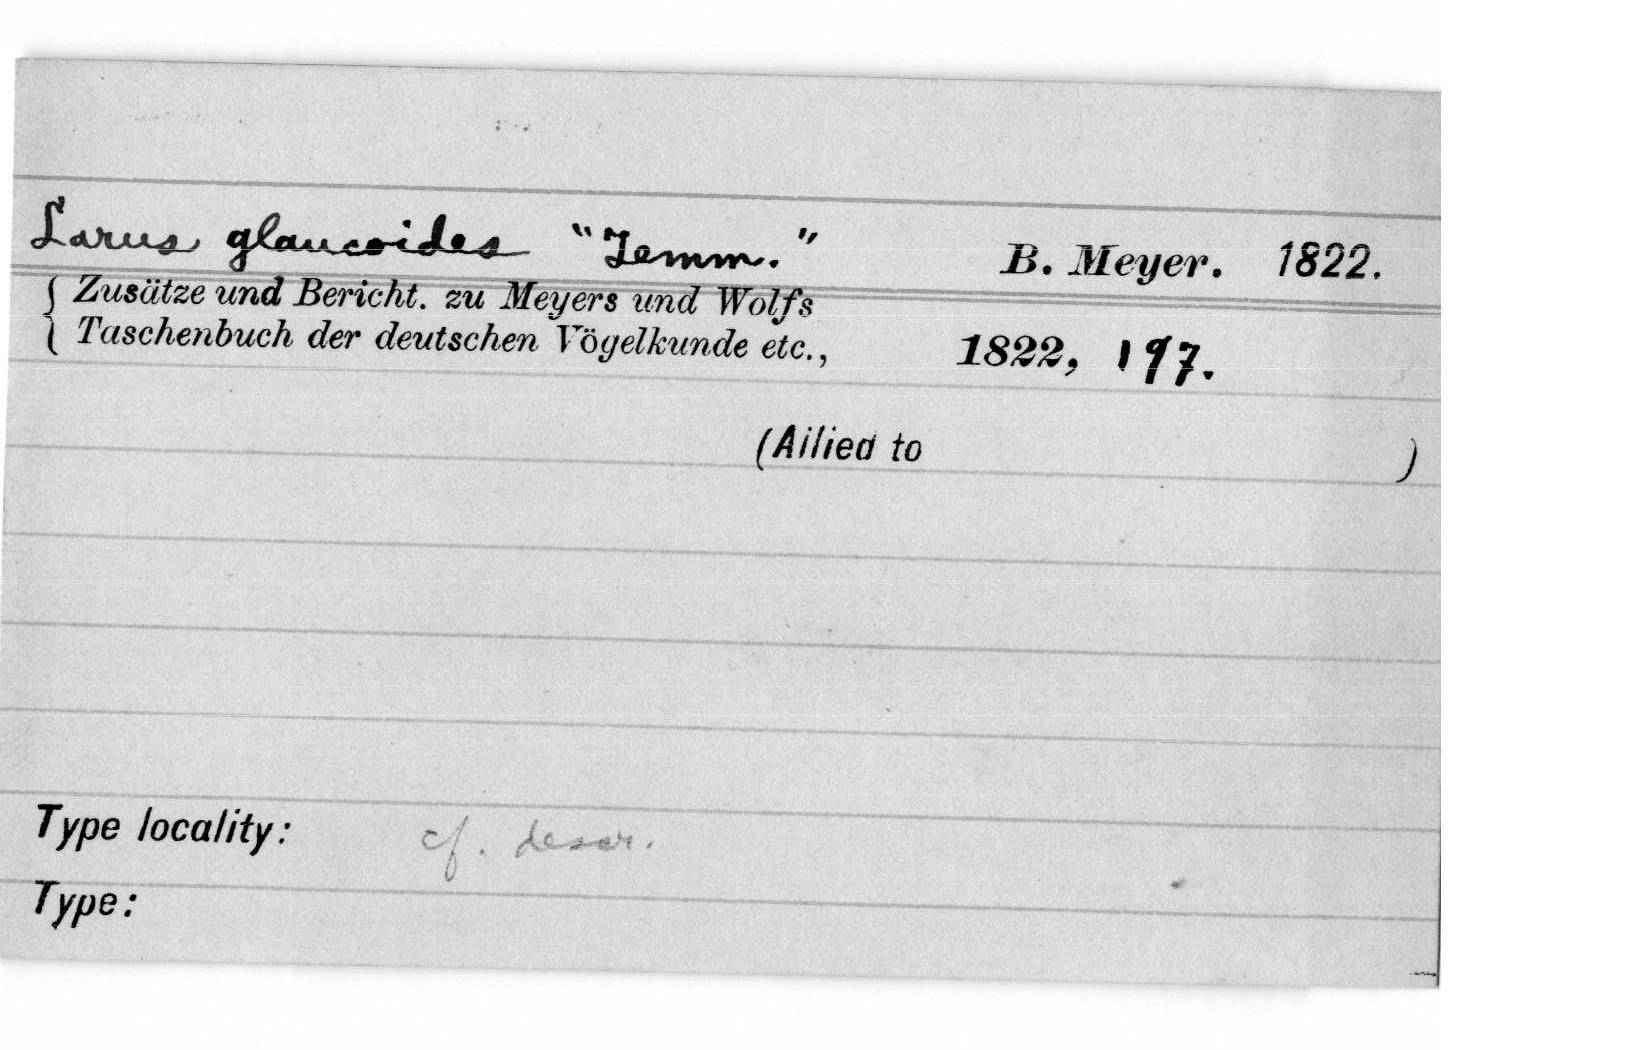 Larus glaucoides "Temm." B. Meyer. 1822.
Zusätze und Bericht. zu Meyers und Wolfs
Taschenbuch der deutschen Vögelkunde etc., 1822, 197.
(Allied to )
Type locality: cf. descr.
Type: